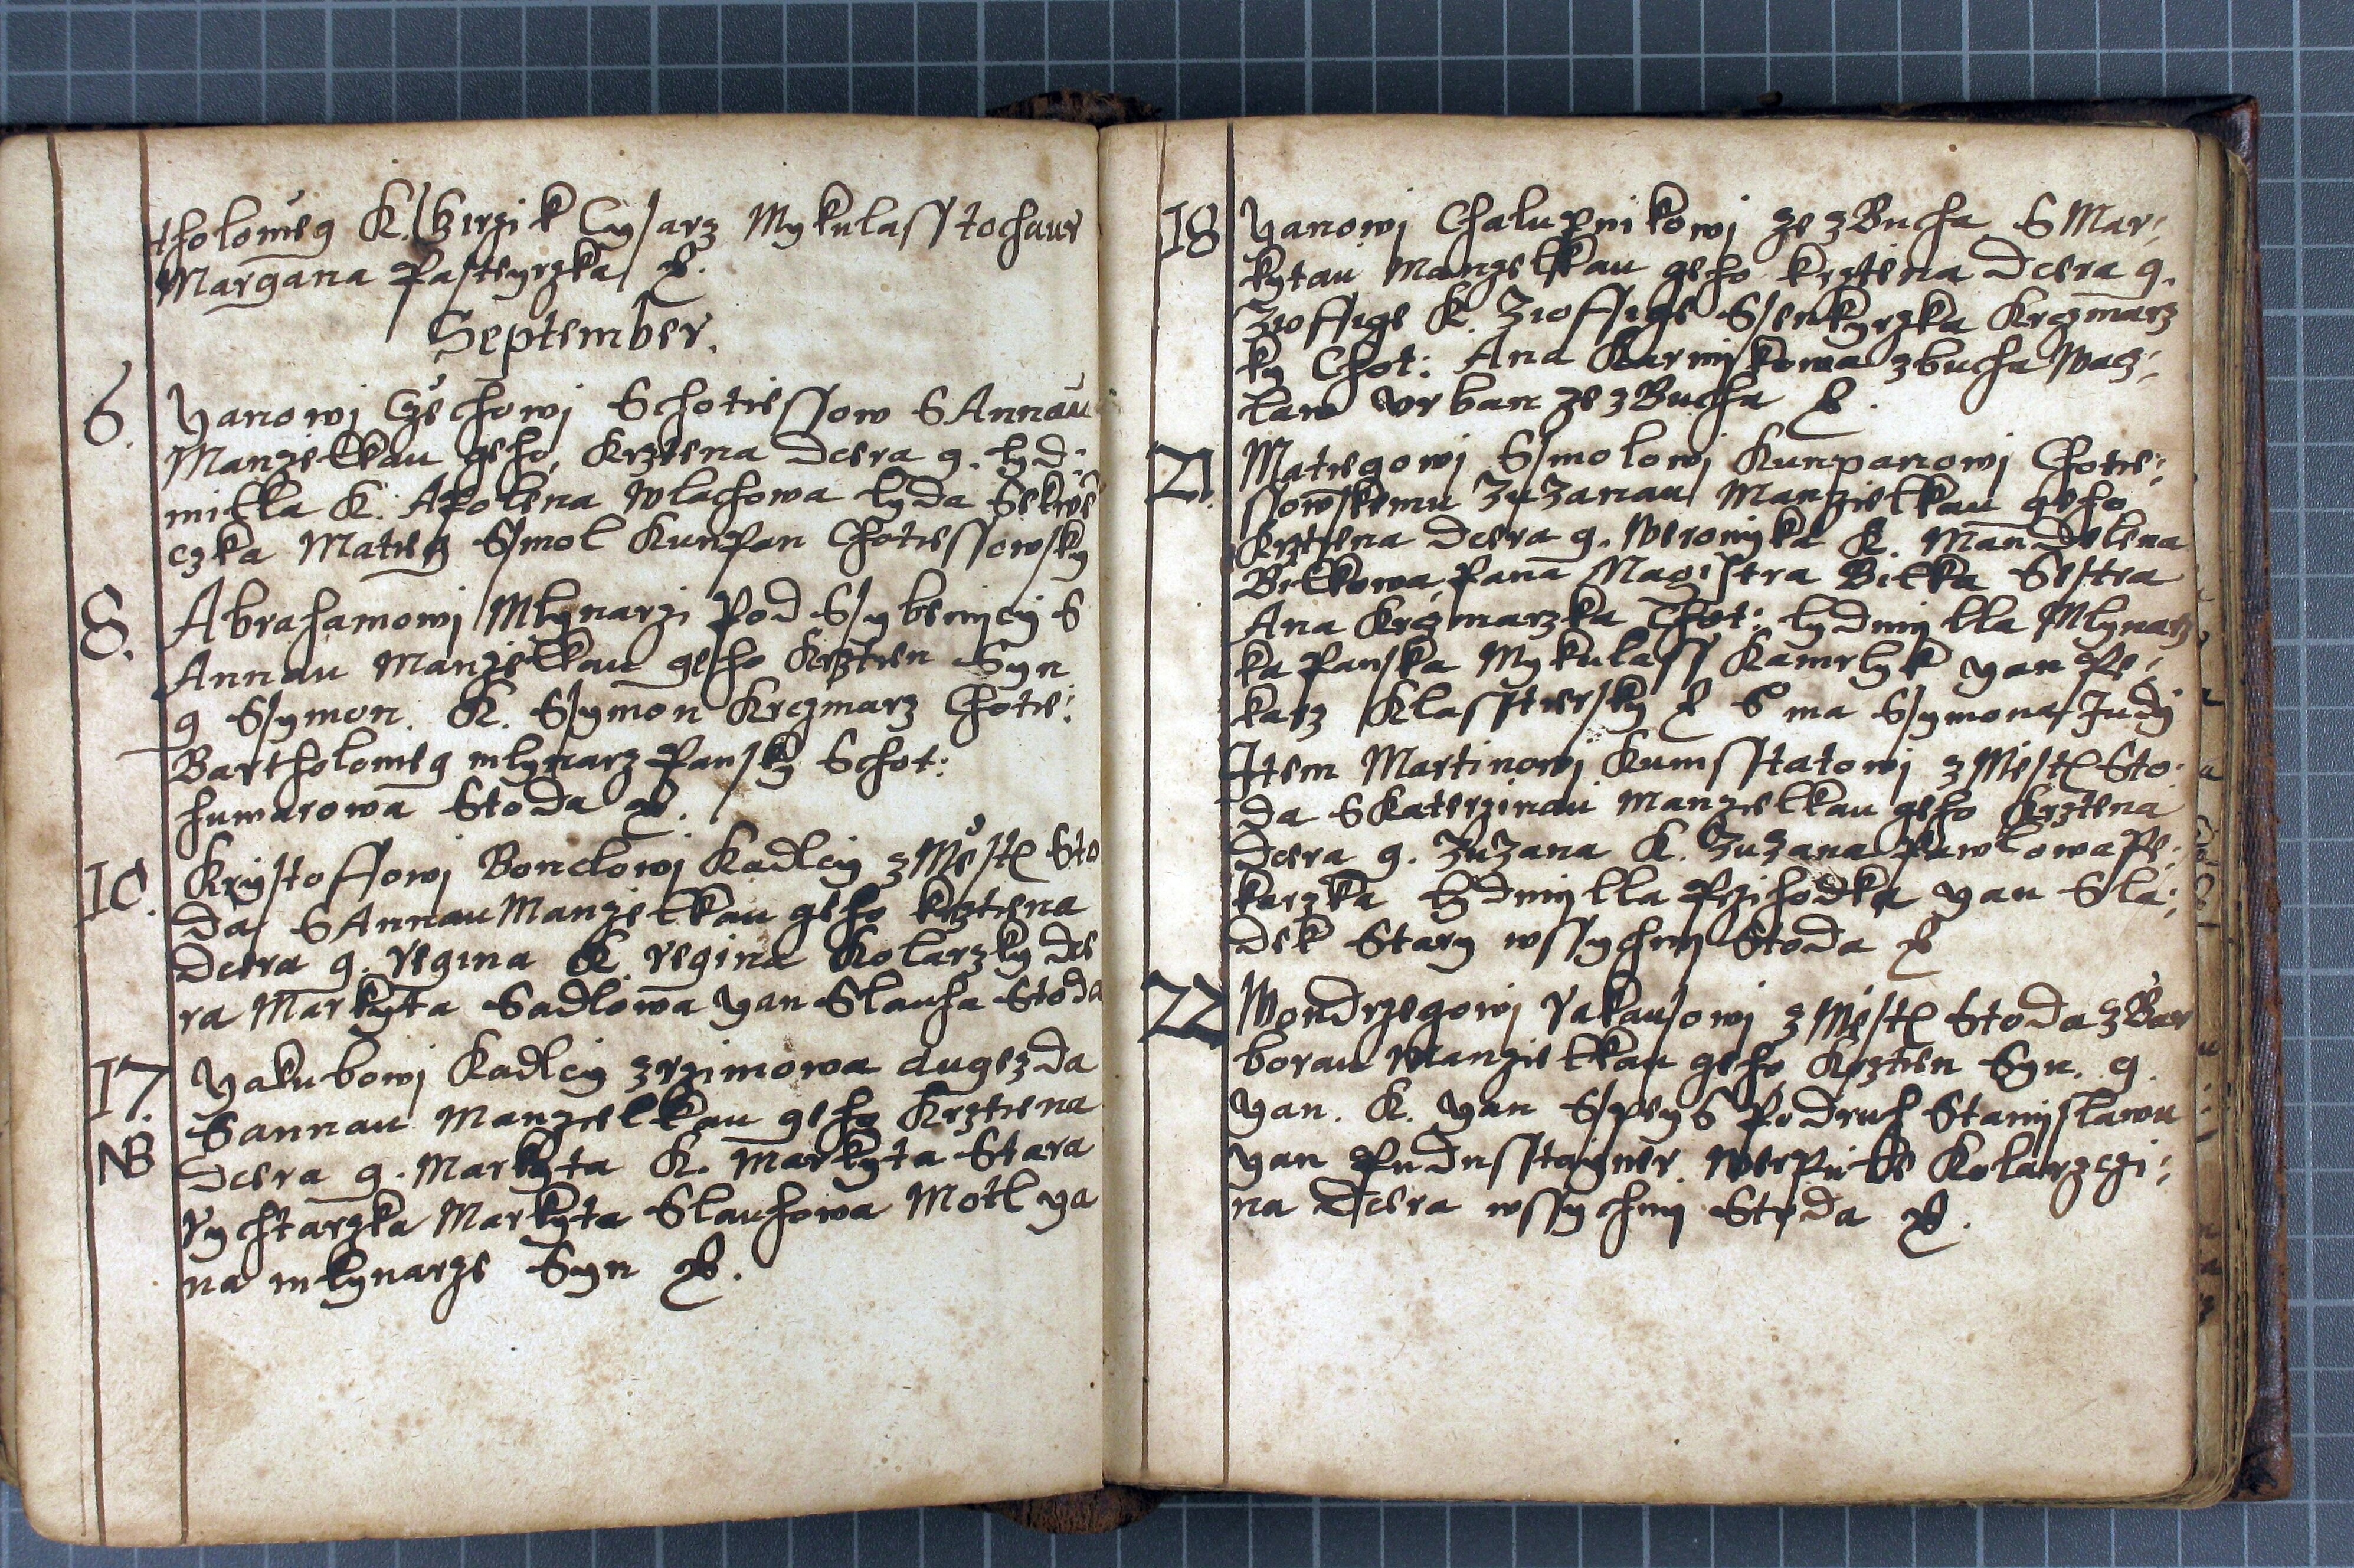 tholomeg K. Girzik Cysarz Mykulass tochaur
Margana Pasteyrzka &.
September.
6. Yanowj Czechowj Schotiessow S Annau
Manzelkau geho, Krztena dcera g. lyd:
milla K. Apolena Wlachowa lyda
czka Mateg Ssmol Kunpan Chotiessowsky
8. Abrahamowj Mlynarzi pod Ssybenicy S
Annau Manzelkau geho Krztien Syn
g Ssymon. K. Ssymon Krczmarz Chotie:
Bartholomeg mlynarz Pansky Schot:
humarowa Stoda &.
10. Krystoffowj Bonelowj Kadlcy z Mest Sto
da S Annau Manzelkau geho krztiena
Dcera g. regina K. regina Kolarzky dce
ra Markyta Sadlowa yan Slauha Stoda
17. Yakubowj Kadlcy zrzimowa augezda
Sannau Manzielkau geho Krztiena
NB dcera g. Markyta K. Markyta Stara
rychtarzka Markyta Slauhowa Motl ya
na mlynarze Syn &.
18 Yanowj Chalupnikowj ze zBucha S Mar:
kytau Manzelkau geho krztena Dcera g.
Zioffige K. Zioffige Ssenkyrzka Krczmarz
ky Chot: Ana Karnykowa zbucha Wacz:
law Vrban ze zBucha &.
21. Mategowj Ssmolowj Kunpanowj Chotie:
ssowskemu ZuZanau Manzielkau geho
Krztiena dcera g. Weronyka K. Mandelena
Bilkowa, Pana Magistra Bilka Sestra
Ana Krczmarzka Chot: lydmylla Mlynarz
ka Panska Mykulass Kamrlyk yan Pe:
karz Klasstersky & S ma Ssymona Judy
Item Martinowj Kumsstatowj z Mest Sto:
da S Katerzinau Manzielkau geho Krztena
Dcera g. ZuZana K. ZuZana Pawlowa Pe:
karzka lydmylla Przihodka yan Sla:
dek Stary wssychny Stoda &
22 Wondrzegowj Rakausowj z Mest Stoda z Bar
borau Manzielkau geho Krztien Syn. g.
yan. K. yan Sspeys Podruh Stanyslawu
yan Pudusstayner. Kolarzegi:
na Dcera wssychny Stoda &.